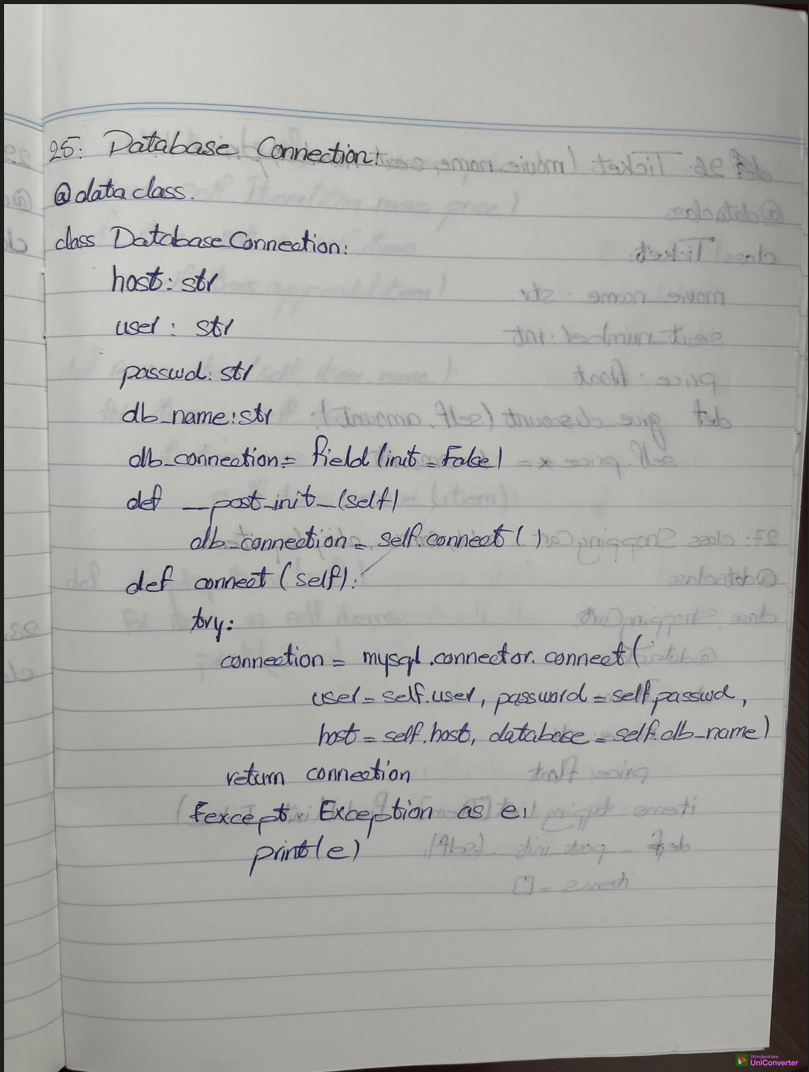 25: Database Connection:
@dataclass.
class DatabaseConnection:
host: str
user: str
passwd: str
db_name: str
db_connection = field(init = False)
def __post_init_(self)
db_connection = self.connect()
def connect(self):
try:
connection = mysql.connector.connect(
user = self.user, password = self.passwd,
host = self.host, database = self.db_name)
return connection
except Exception as e:
print(e)
Wondershare
UniConverter